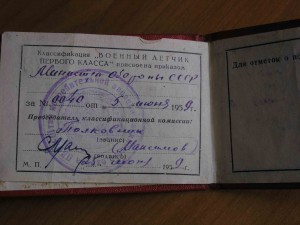 Классификация „ВОЕННЫЙ ЛЕТЧИК
ПЕРВОГО КЛАССА" присвоена приказом
Министра обороны СССР
за № 0040 от 5 июня 1959 г.
Председатель классификационной комиссии:
Полковник
(звание)
(Максимов)
(подпись)
М. П. 1959 г.
Для отметок о п